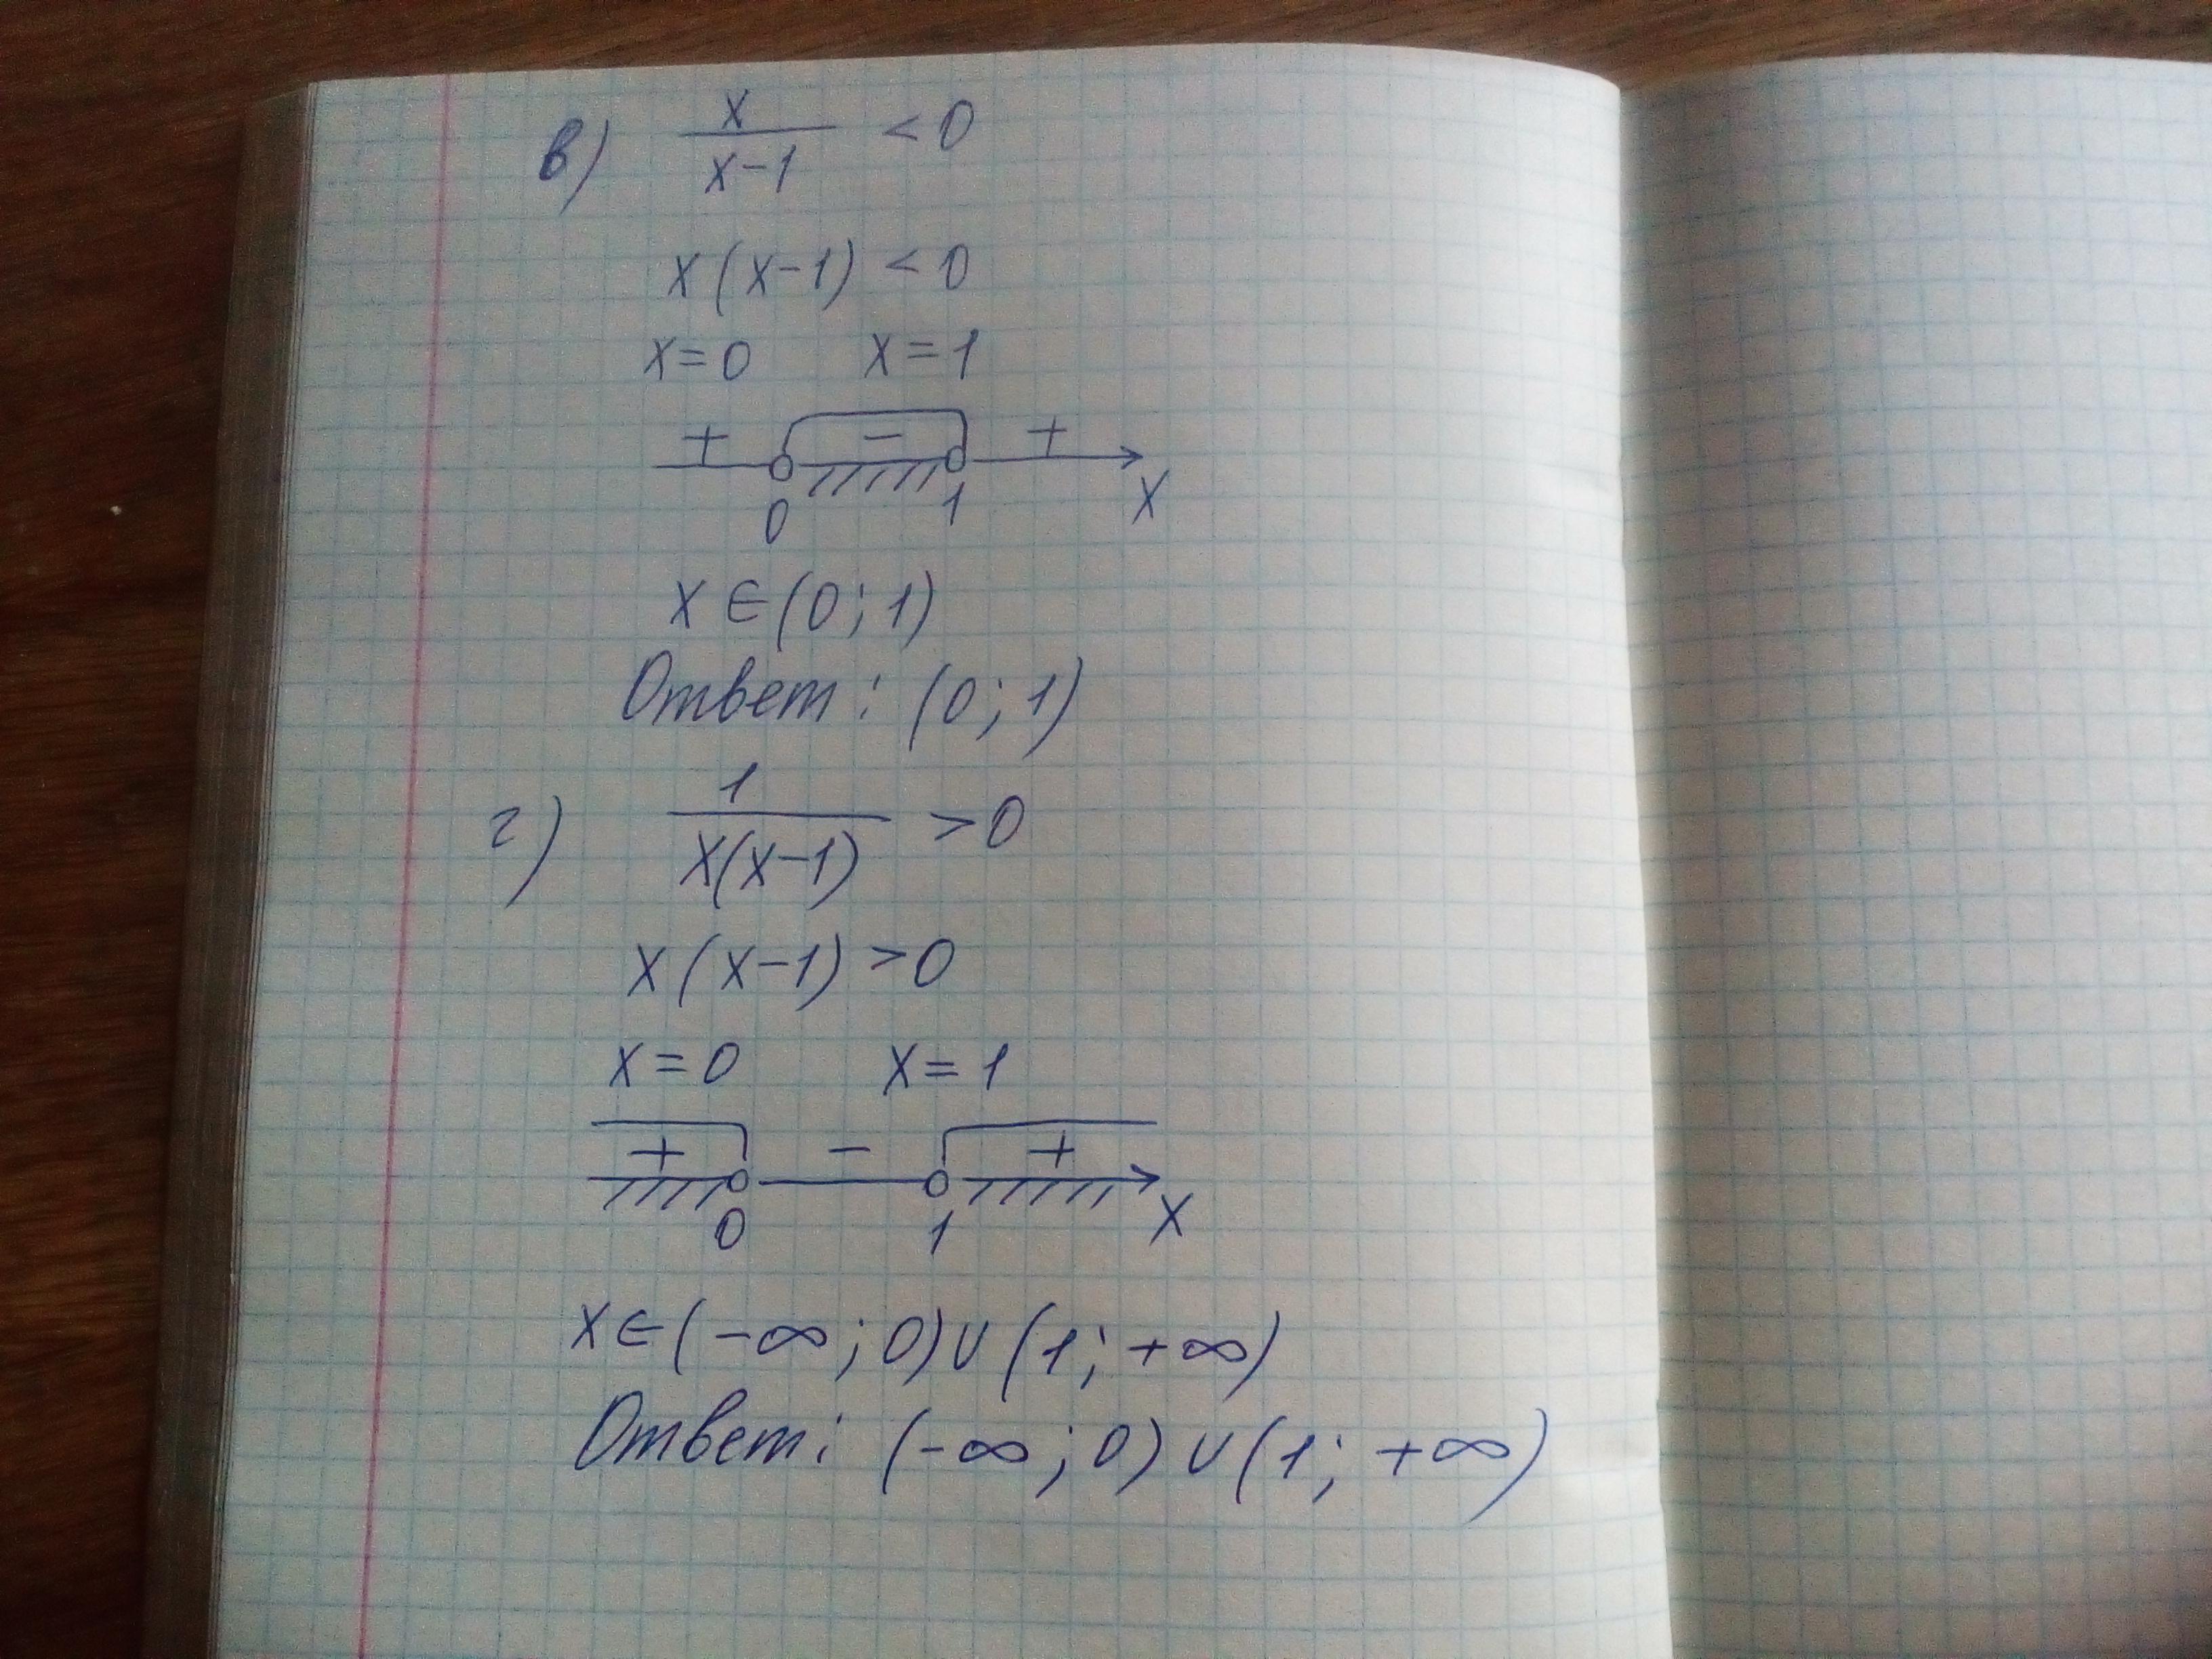 в) x/(x-1) < 0
x(x-1) < 0
x=0 x=1
+ - +
0 1 x
x∈(0;1)
Ответ: (0;1)
г) 1/(x(x-1)) > 0
x(x-1) > 0
x=0 x=1
+ - +
0 1 x
x∈(-∞;0)∪(1;+∞)
Ответ: (-∞;0)∪(1;+∞)